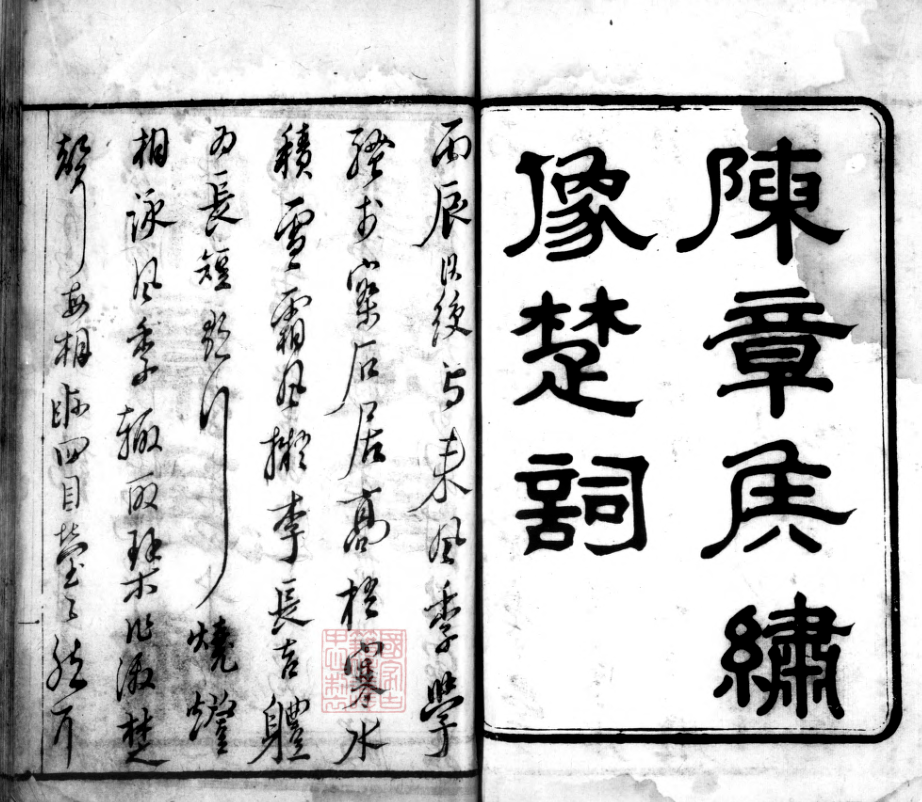 陳章侯繡
像楚詞
丙辰洪綬与来風季學
騷於石居高梧寒水
積雪霜風擬李長吉體
為長短歌行燒燈
相詠風季輒取琴作激楚
聲每相眎四目瑩々然耳